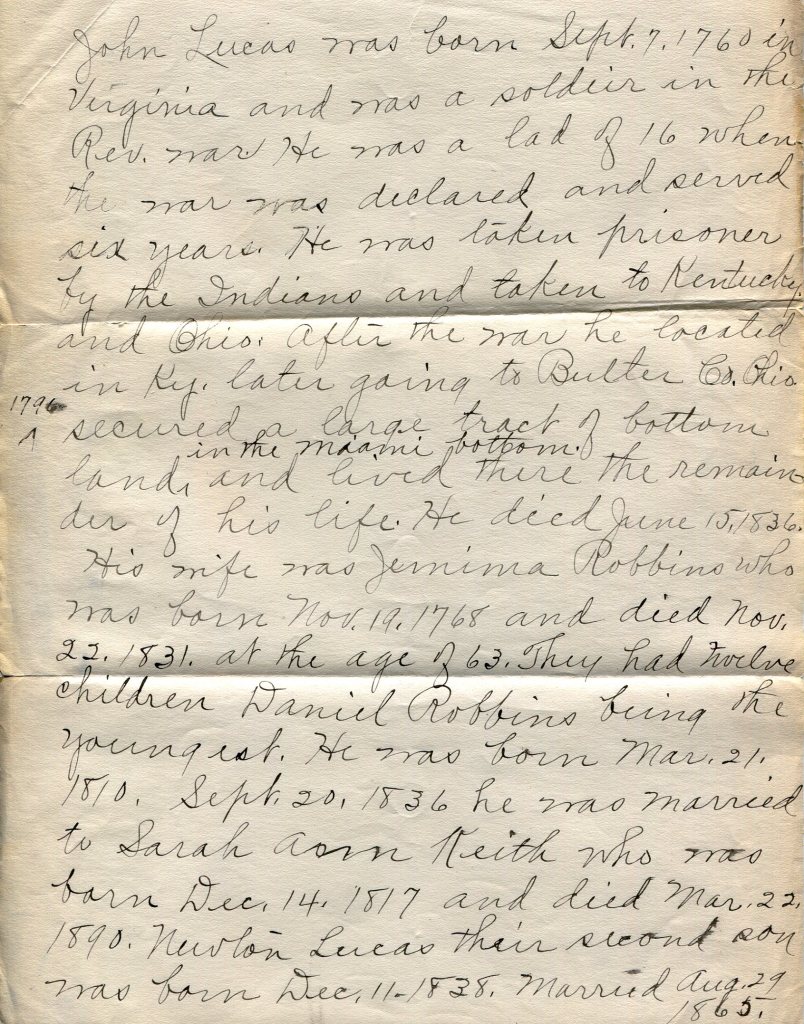 John Lucas was born Sept. 7. 1760 in
Virginia and was a soldier in the
Rev. war He was a lad of 16 when
the war was declared and served
six years. He was taken prisoner
by the Indians and taken to Kentucky
and Ohio. After the war he located
in Ky. later going to Butler Co. Ohio
1796
^ secured a large tract of bottom
in the Miami bottom.
land, and lived there the remain-
der of his life. He died June 15, 1836.
His wife was Jemima Robbins who
was born Nov. 19. 1768 and died Nov.
22. 1831. at the age of 63. They had twelve
children Daniel Robbins being the
youngest. He was born Mar. 21.
1810. Sept. 20. 1836 he was married
to Sarah Ann Keith who was
born Dec. 14. 1817 and died Mar. 22.
1890. Newton Lucas their second son
was born Dec. 11-1838. Married Aug. 29
1865.